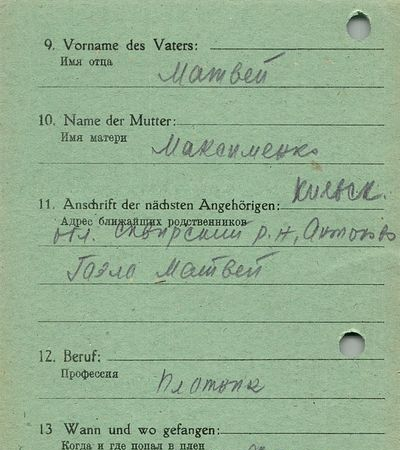 9. Vorname des Vaters:
Имя отца
Матвей
10. Name der Mutter:
Имя матери
Максименко
Киевск.
11. Anschrift der nächsten Angehörigen:
Адрес ближайших родственников
обл. Сквирский р.н, Антонов
Матвей
12. Beruf:
Профессия
13 Wann und wo gefangen:
Когда и где попал в плен